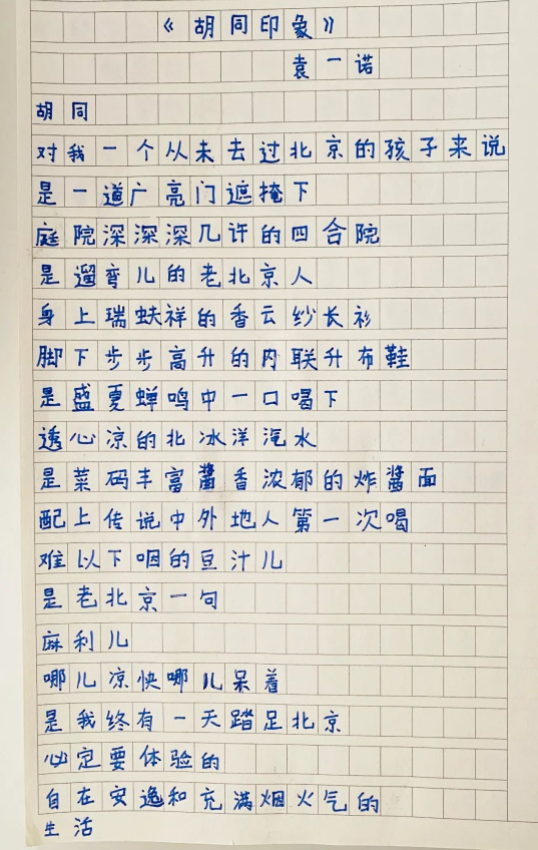 《胡同印象》
袁一诺
胡同
对我一个从未去过北京的孩子来说
是一道广亮门遮掩下
庭院深深深几许的四合院
是遛弯儿的老北京人
身上瑞蚨祥的香云纱长衫
脚下步步高升的内联升布鞋
是盛夏蝉鸣中一口喝下
透心凉的北冰洋汽水
是菜码丰富酱香浓郁的炸酱面
配上传说中外地人第一次喝
难以下咽的豆汁儿
是老北京一句
麻利儿
哪儿凉快哪儿呆着
是我终有一天踏足北京
必定要体验的
自在安逸和充满烟火气的
生活